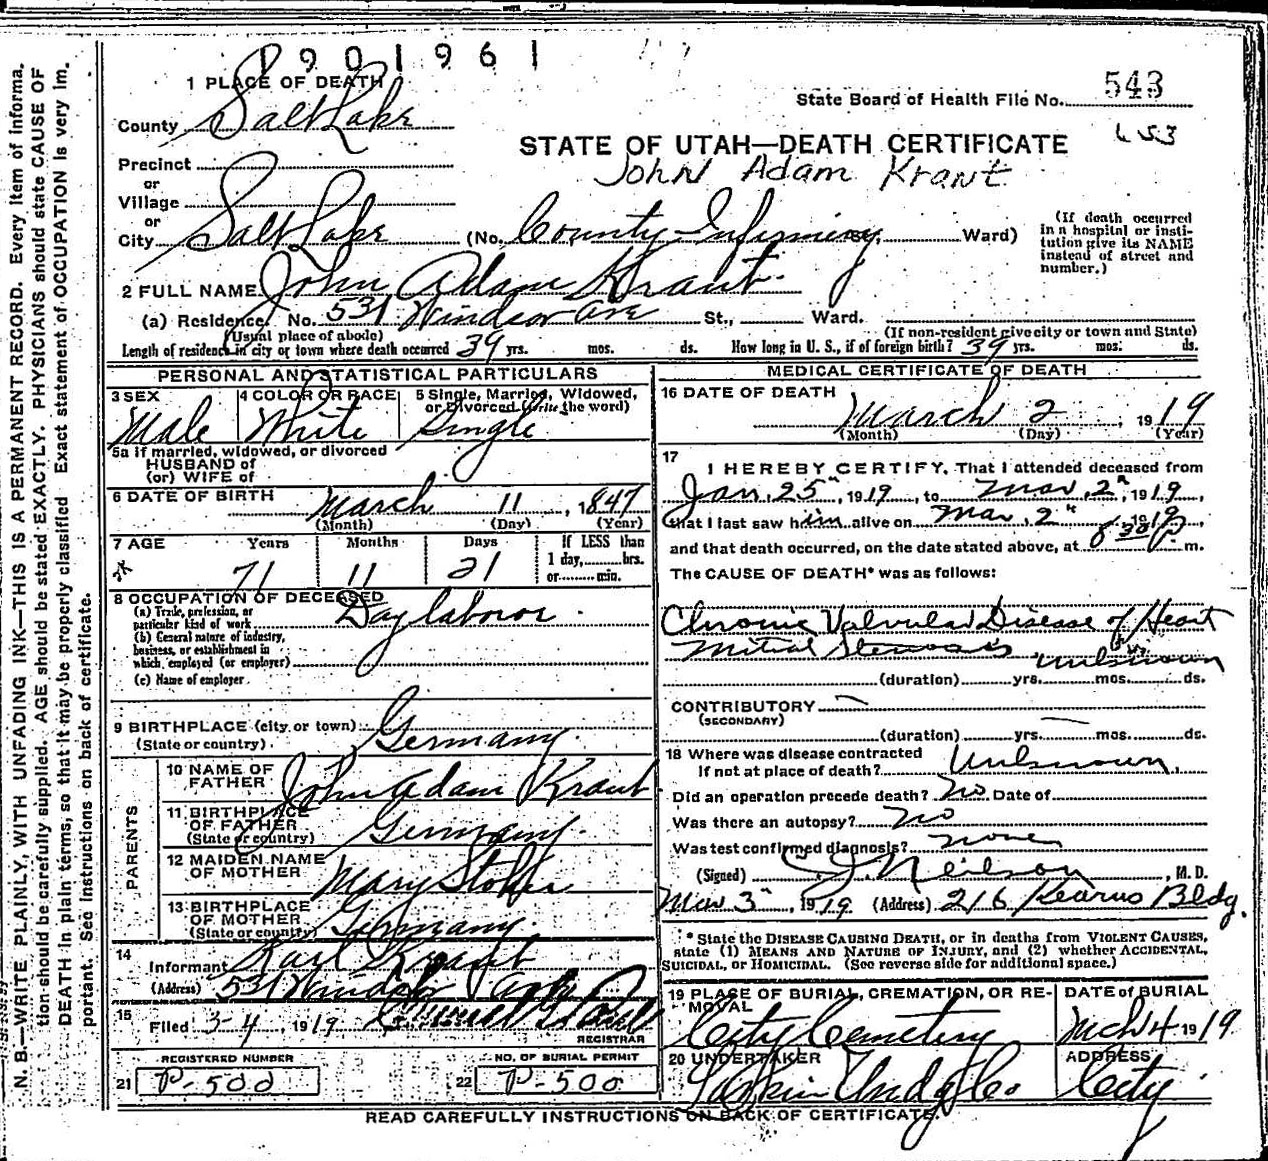 1901961
1 PLACE OF DEATH
State Board of Health File No. 543
County Salt Lake
653
STATE OF UTAH—DEATH CERTIFICATE
Precinct
John Adam Krant
or
Village
or
City Salt Lake (No. County Infirmiry St., Ward)
(If death occurred in a hospital or institution give its NAME instead of street and number.)
2 FULL NAME John Adam Kraut
(a) Residence. No. 531 Windsor Ave St., Ward.
(Usual place of abode) (If non-resident give city or town and State)
Length of residence in city or town where death occurred 39 yrs. mos. ds. How long in U. S., if of foreign birth? 39 yrs. mos. ds.
PERSONAL AND STATISTICAL PARTICULARS
3 SEX Male
4 COLOR OR RACE White
5 Single, Married, Widowed, or Divorced (write the word) Single
5a If married, widowed, or divorced
HUSBAND of
(or) WIFE of
6 DATE OF BIRTH March 11, 1847
(Month) (Day) (Year)
7 AGE Years Months Days If LESS than
71 11 21 1 day, hrs.
or min.
8 OCCUPATION OF DECEASED
(a) Trade, profession, or particular kind of work Day laborer
(b) General nature of industry, business, or establishment in which employed (or employer)
(c) Name of employer
9 BIRTHPLACE (city or town)
(State or country) Germany
PARENTS
10 NAME OF FATHER John Adam Kraut
11 BIRTHPLACE OF FATHER (State or country) Germany
12 MAIDEN NAME OF MOTHER Mary
13 BIRTHPLACE OF MOTHER (State or country) Germany
14 Informant Karl Kraut
(Address) 531 Windsor
15 Filed 3-4, 1919
REGISTRAR
REGISTERED NUMBER
21 P-500
NO. OF BURIAL PERMIT
22 P-500
MEDICAL CERTIFICATE OF DEATH
16 DATE OF DEATH
March 2, 1919
(Month) (Day) (Year)
17 I HEREBY CERTIFY, That I attended deceased from
Jan. 25", 1919, to Mar. 2", 1919,
that I last saw him alive on Mar. 2" 1919,
and that death occurred, on the date stated above, at 8 30 P m.
The CAUSE OF DEATH* was as follows:
Chronic Valvular Disease of Heart
Mitral Stenosis
unknown
(duration) yrs. mos. ds.
CONTRIBUTORY —
(SECONDARY)
(duration) — yrs. mos. ds.
18 Where was disease contracted
If not at place of death? Unknown.
Did an operation precede death? No. Date of
Was there an autopsy? No
Was test confirmed diagnosis? none
(Signed) Neilson, M. D.
Mar 3", 1919 (Address) 216 Kearns Bldg.
* State the DISEASE CAUSING DEATH, or in deaths from VIOLENT CAUSES,
state (1) MEANS AND NATURE OF INJURY, and (2) whether ACCIDENTAL,
SUICIDAL, OR HOMICIDAL. (See reverse side for additional space.)
19 PLACE OF BURIAL, CREMATION, OR REMOVAL City Cemetery
DATE of BURIAL Mch 4 1919
20 UNDERTAKER Larkin Undg Co
ADDRESS City
READ CAREFULLY INSTRUCTIONS ON BACK OF CERTIFICATE.
N. B.—WRITE PLAINLY, WITH UNFADING INK—THIS IS A PERMANENT RECORD. Every item of informa-
tion should be carefully supplied. AGE should be stated EXACTLY. PHYSICIANS should state CAUSE OF
DEATH in plain terms, so that it may be properly classified. Exact statement of OCCUPATION is very im-
portant. See instructions on back of certificate.